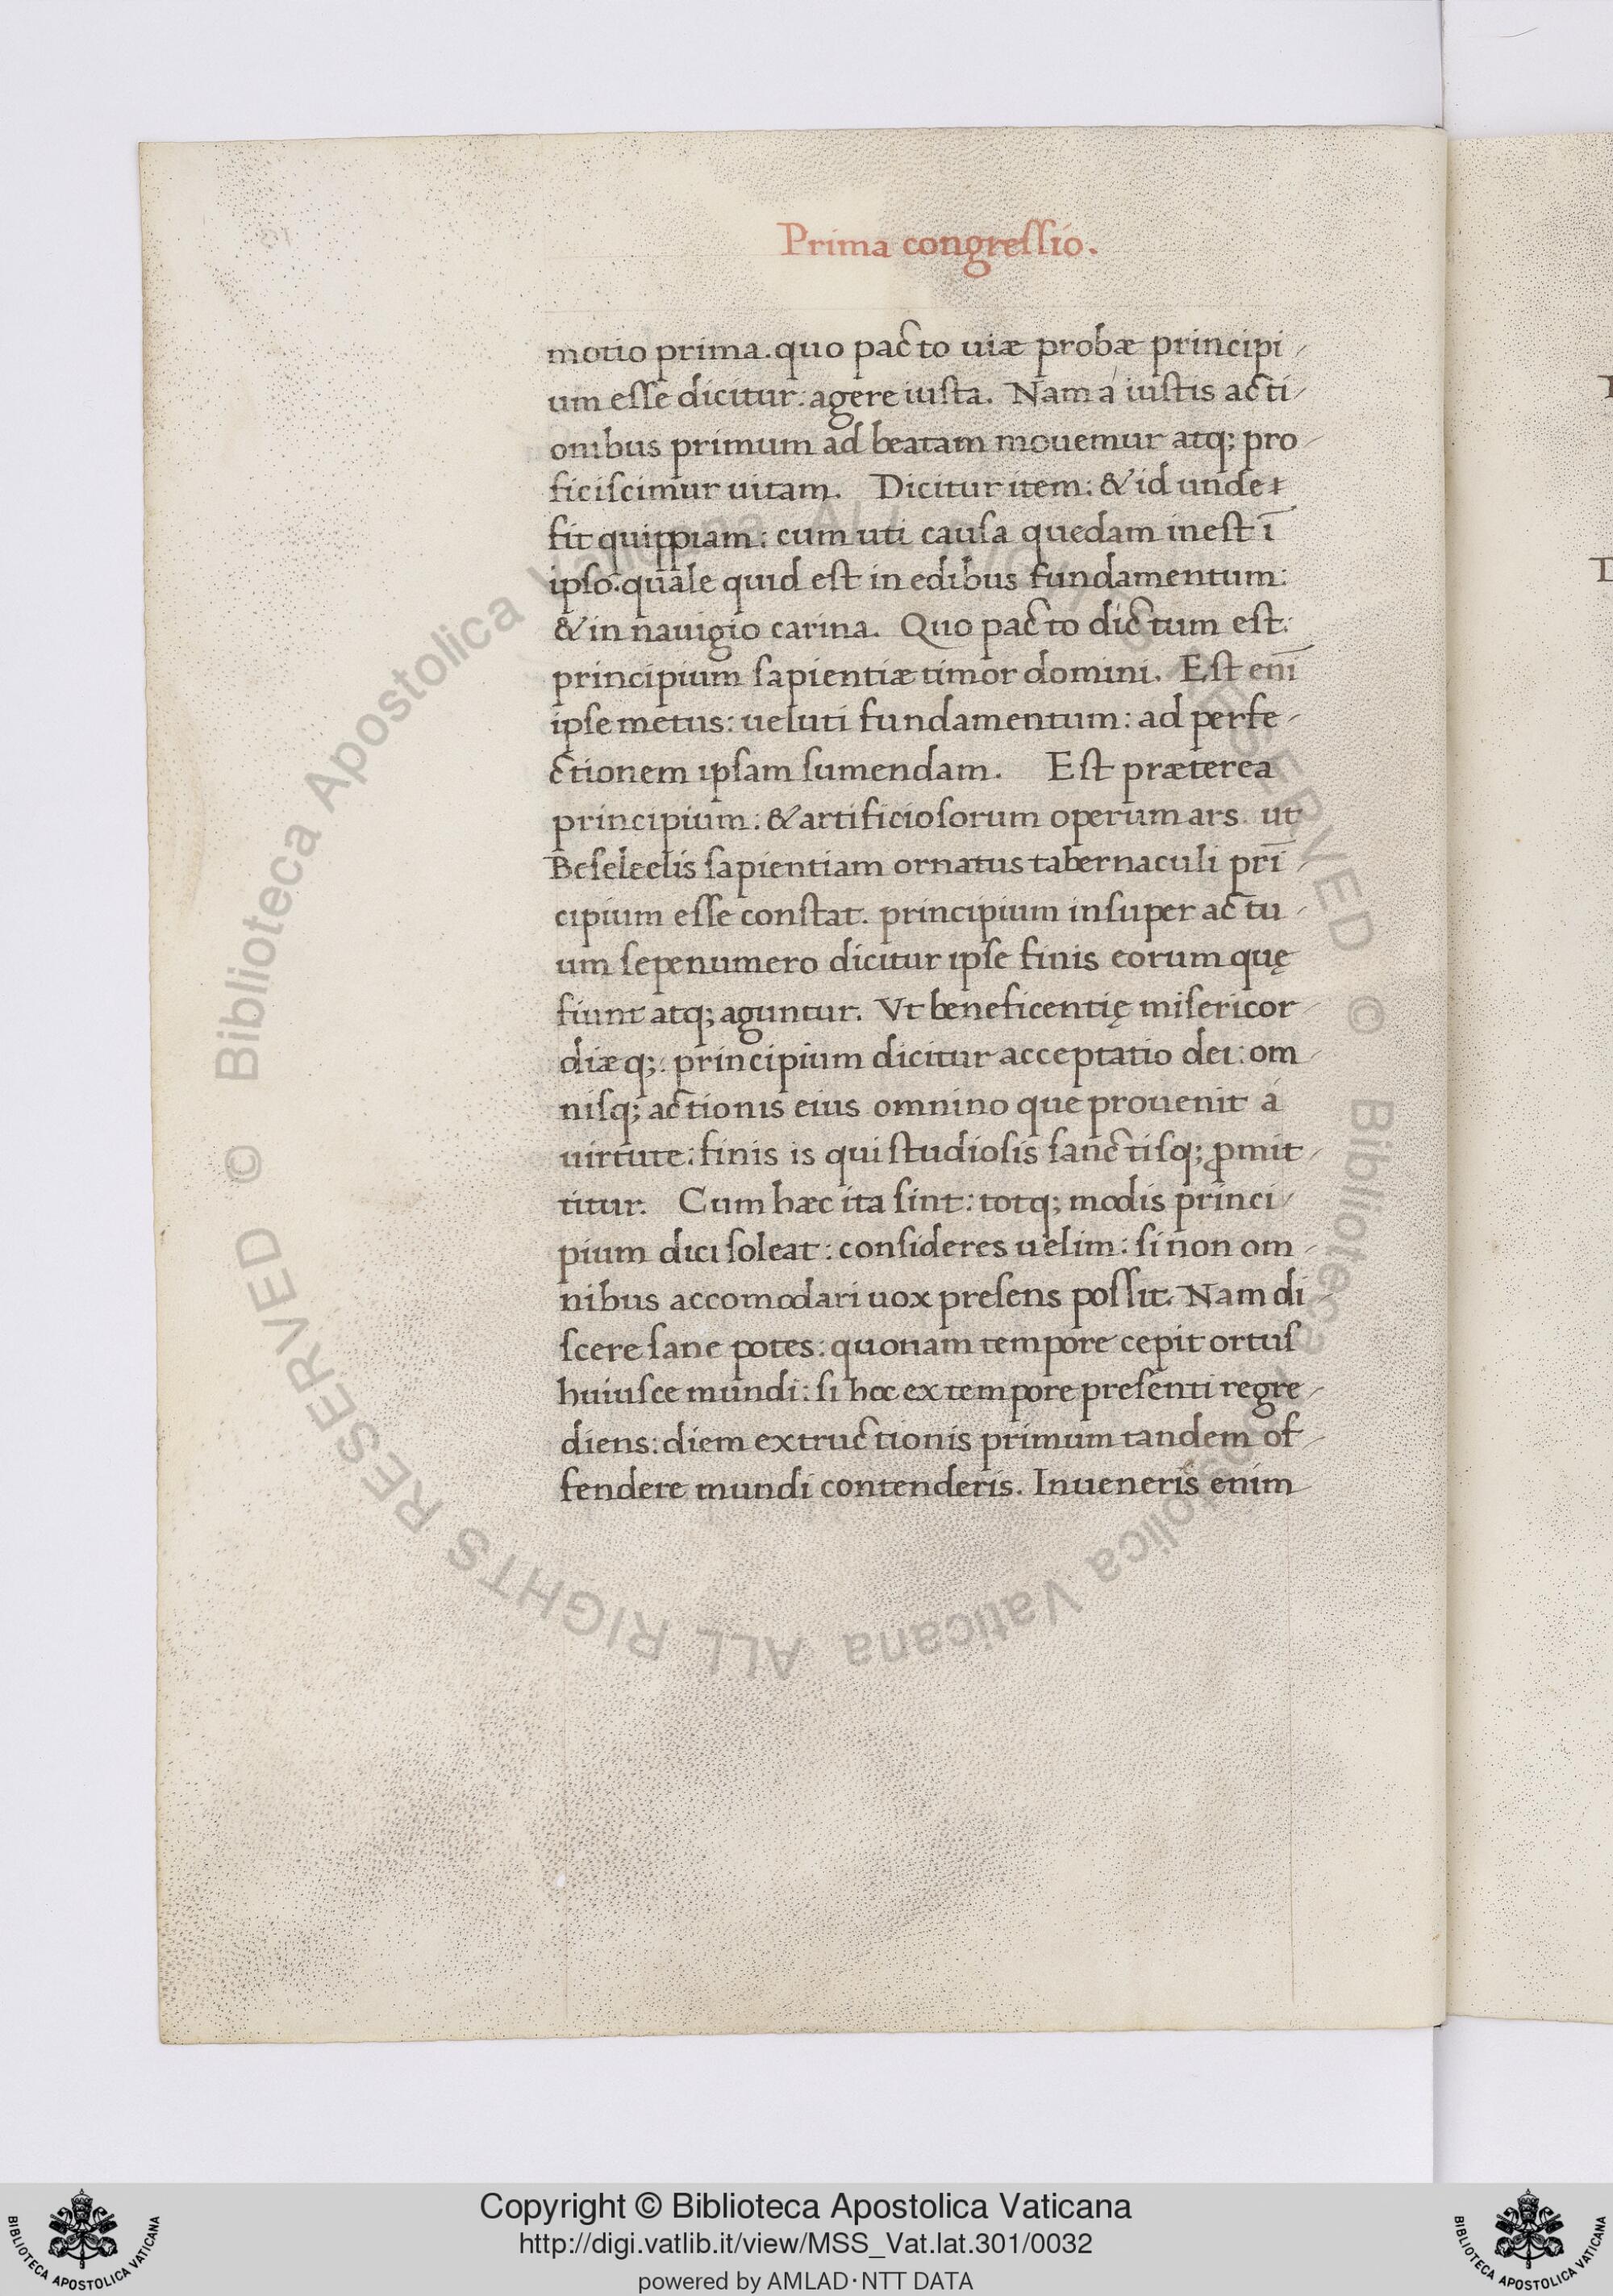 Prima congreſſio.
motio prima. quo pacto uiæ probæ principi-
um eſſe dicitur: agere iuſta. Nam á iuſtis acti-
onibus primum ad beatam mouemur atq; pro-
ficiſcimur uitam. Dicitur item: & id unde
fit quippiam: cum uti cauſa quedam ineſt ī
ipſo. quale quid eſt in edibus fundamentum:
& in nauigio carina. Quo pacto dictum eſt:
principium ſapientiæ timor domini. Eſt eni̅
ipſe metus: ueluti fundamentum: ad perfe-
ctionem ipſam ſumendam. Eſt præterea
principium: & artificioſorum operum ars. ut
Beſeleelis ſapientiam ornatus tabernaculi pri̅-
cipium eſſe conſtat. principium inſuper actu-
um ſepenumero dicitur ipſe finis eorum quę
fiunt atq; aguntur. Vt beneficentię miſericor-
diæq;: principium dicitur acceptatio dei: om-
niſq; actionis eius omnino que prouenit á
uirtute: finis is qui ſtudioſis ſanctiſq; ꝓmit-
titur. Cum hæc ita ſint: totq; modis princi-
pium dici ſoleat: conſideres uelim: ſi non om-
nibus accomodari uox preſens poſſit. Nam di-
ſcere ſane potes: quonam tempore cepit ortuſ
huiuſce mundi: ſi hoc ex tempore preſenti regre-
diens: diem extructionis primum tandem of-
fendere mundi contenderis. Inueneris enim
© Biblioteca Apostolica Vaticana ALL RIGHTS RESERVED
© Biblioteca Apostolica Vaticana ALL RIGHTS RESERVED
Copyright © Biblioteca Apostolica Vaticana
http://digi.vatlib.it/view/MSS_Vat.lat.301/0032
powered by AMLAD·NTT DATA
BIBLIOTECA APOSTOLICA VATICANA
BIBLIOTECA APOSTOLICA VATICANA